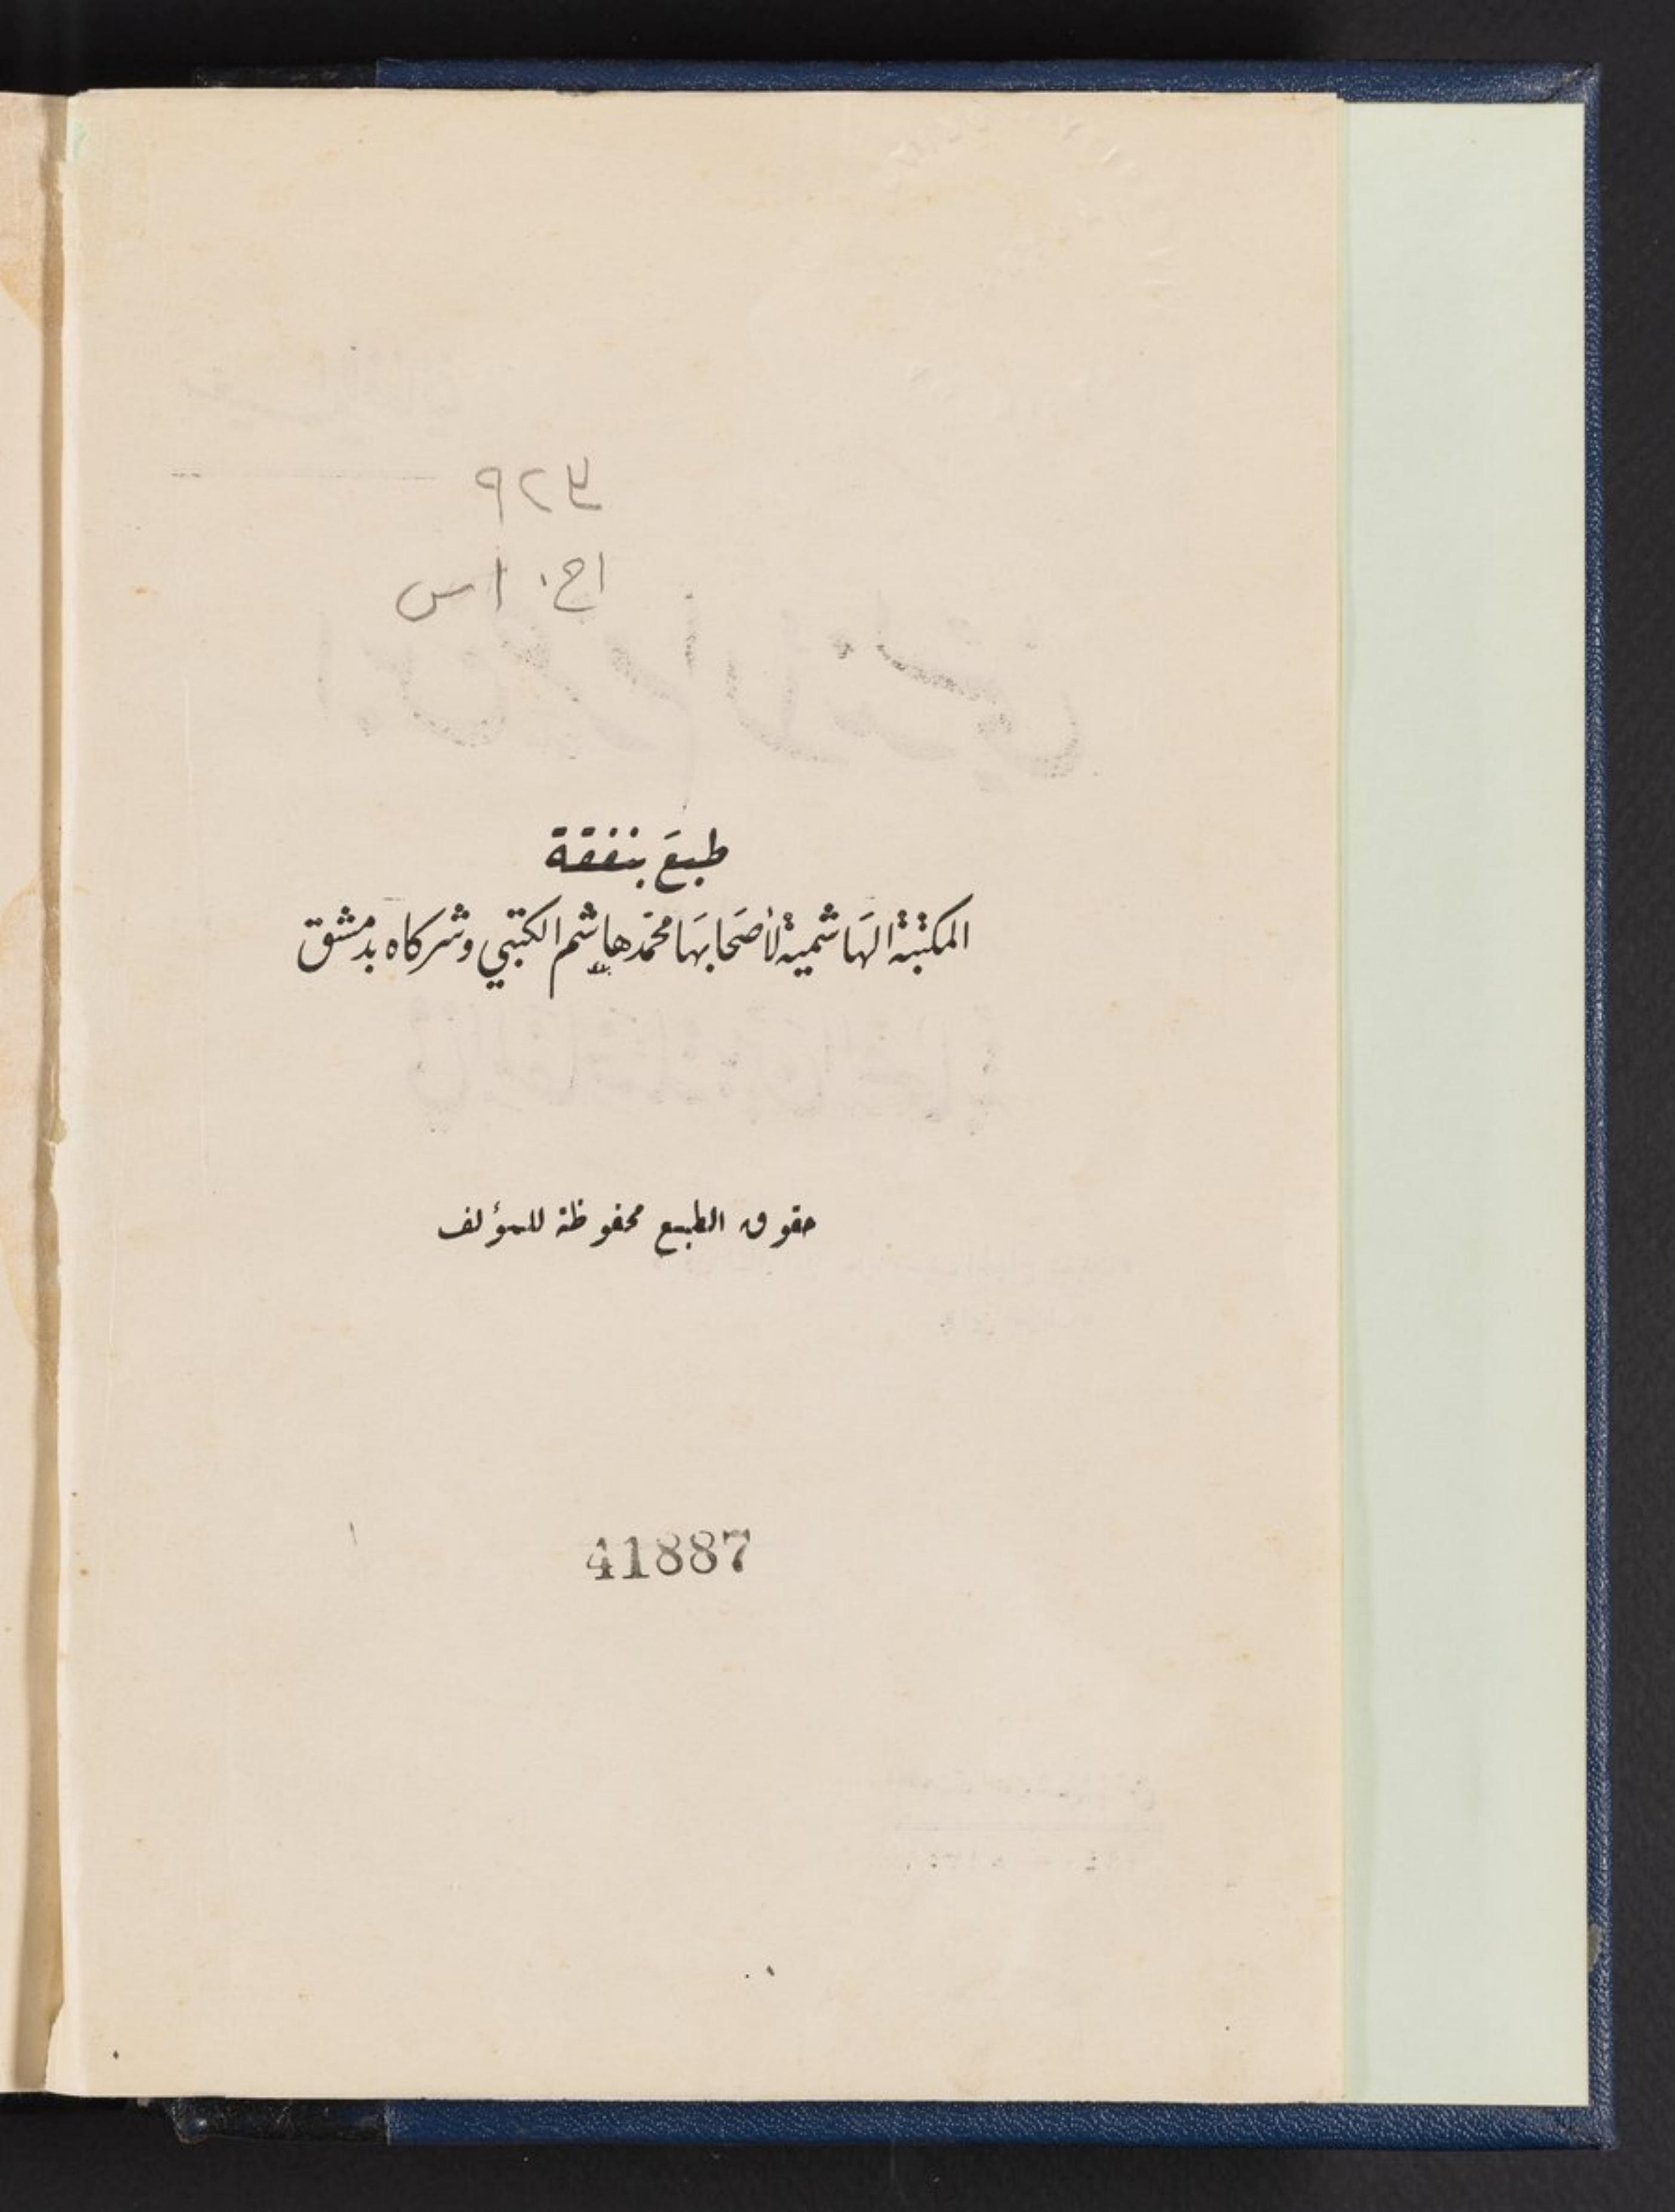 طبعَ بنفقة
المكتبة الهَاشمية لأصَحَابهَا محمّد هاشم الكتبي وشركاه بدمشق
حقوق الطبع محفوظة للمؤلف
41887